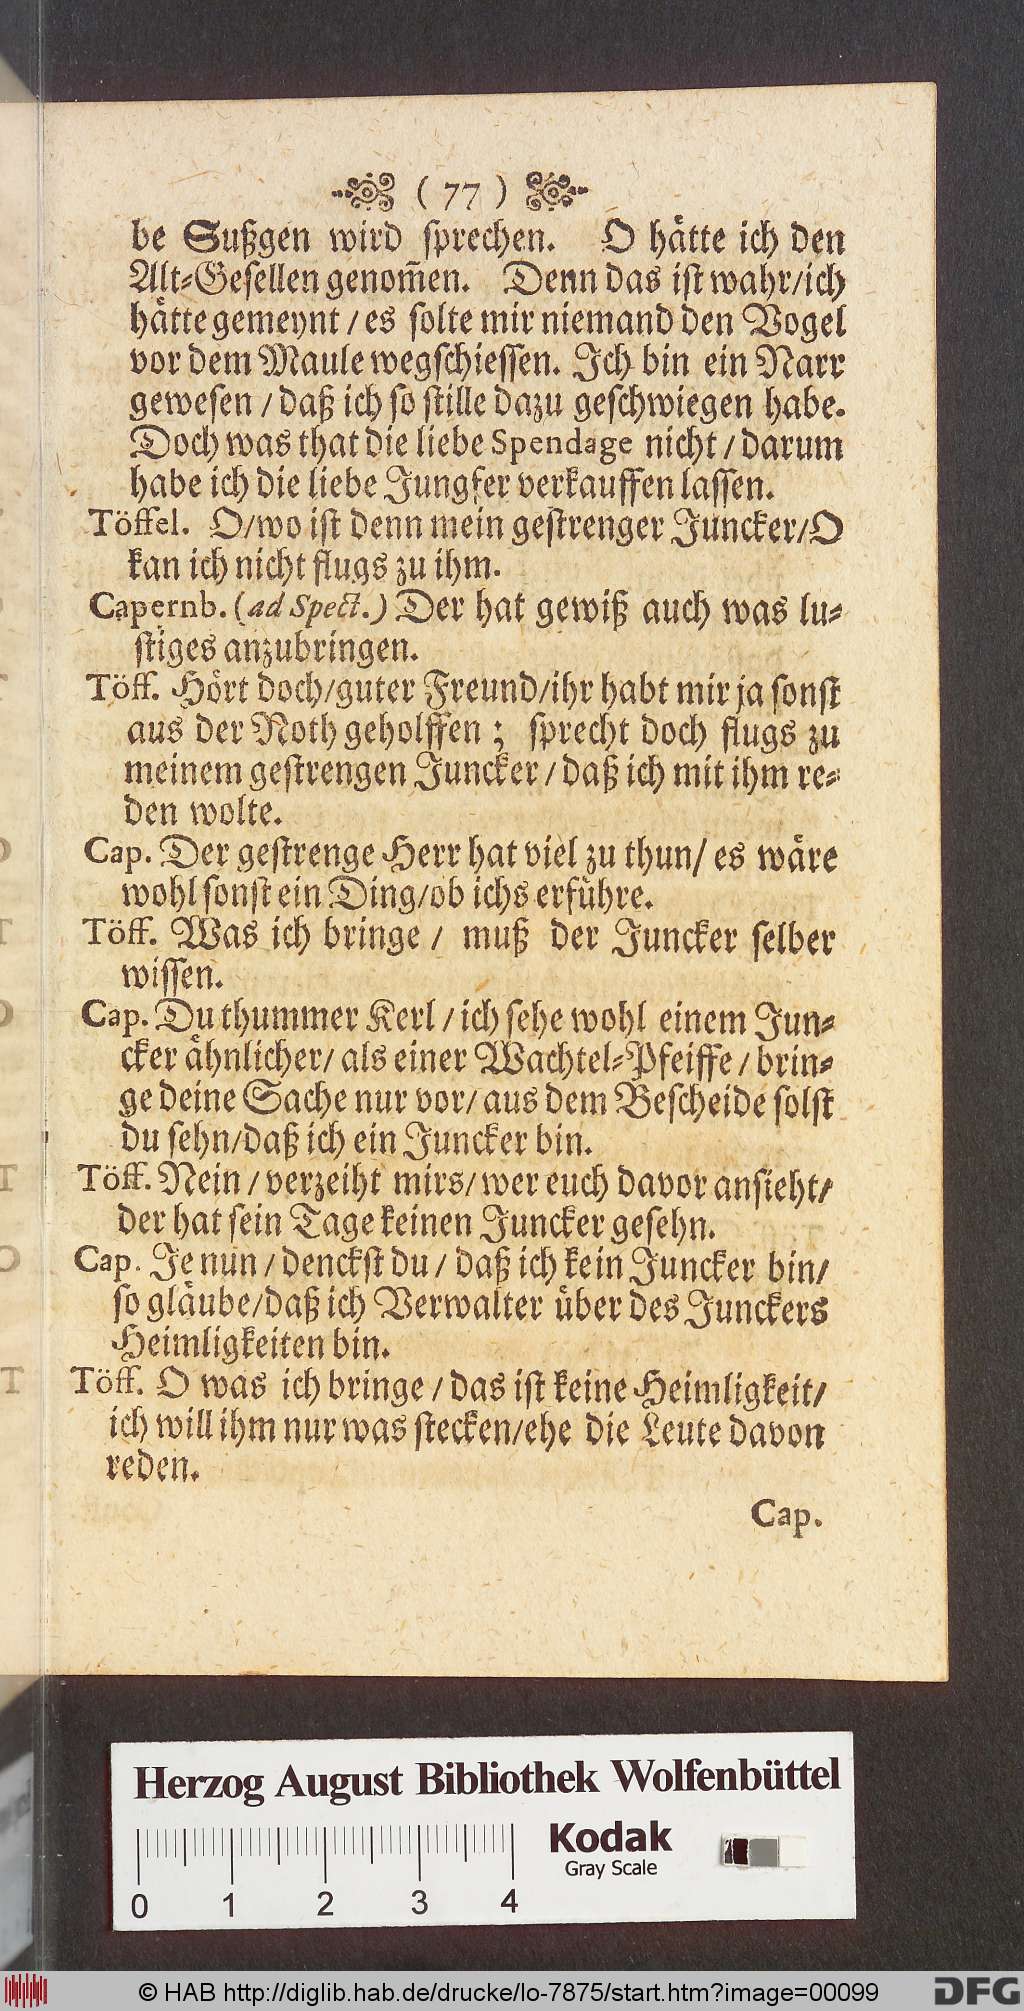 ( 77 )
be Sußgen wird sprechen. O hätte ich den
Alt-Gesellen genom̃en. Denn das ist wahr/ich
hätte gemeynt / es solte mir niemand den Vogel
vor dem Maule wegschiessen. Ich bin ein Narr
gewesen / daß ich so stille dazu geschwiegen habe.
Doch was that die liebe Spendage nicht / darum
habe ich die liebe Jungfer verkauffen lassen.
Töffel. O/wo ist denn mein gestrenger Juncker/O
kan ich nicht flugs zu ihm.
Capernb. (ad Spect.) Der hat gewiß auch was lu-
stiges anzubringen.
Töff. Hört doch/guter Freund/ihr habt mir ja sonst
aus der Noth geholffen ; sprecht doch flugs zu
meinem gestrengen Juncker / daß ich mit ihm re-
den wolte.
Cap. Der gestrenge Herr hat viel zu thun/ es wäre
wohl sonst ein Ding/ob ichs erführe.
Töff. Was ich bringe / muß der Juncker selber
wissen.
Cap. Du thummer Kerl / ich sehe wohl einem Jun-
cker ähnlicher/ als einer Wachtel-Pfeiffe / brin-
ge deine Sache nur vor/ aus dem Bescheide solst
du sehn/daß ich ein Juncker bin.
Töff. Nein / verzeiht mirs/ wer euch davor ansieht/
der hat sein Tage keinen Juncker gesehn.
Cap. Je nun / denckst du / daß ich kein Juncker bin/
so gläube/daß ich Verwalter über des Junckers
Heimligkeiten bin.
Töff. O was ich bringe / das ist keine Heimligkeit/
ich will ihm nur was stecken/ehe die Leute davon
reden.
Cap.
Herzog August Bibliothek Wolfenbüttel
Kodak
Gray Scale
0 1 2 3 4
© HAB http://diglib.hab.de/drucke/lo-7875/start.htm?image=00099
DFG